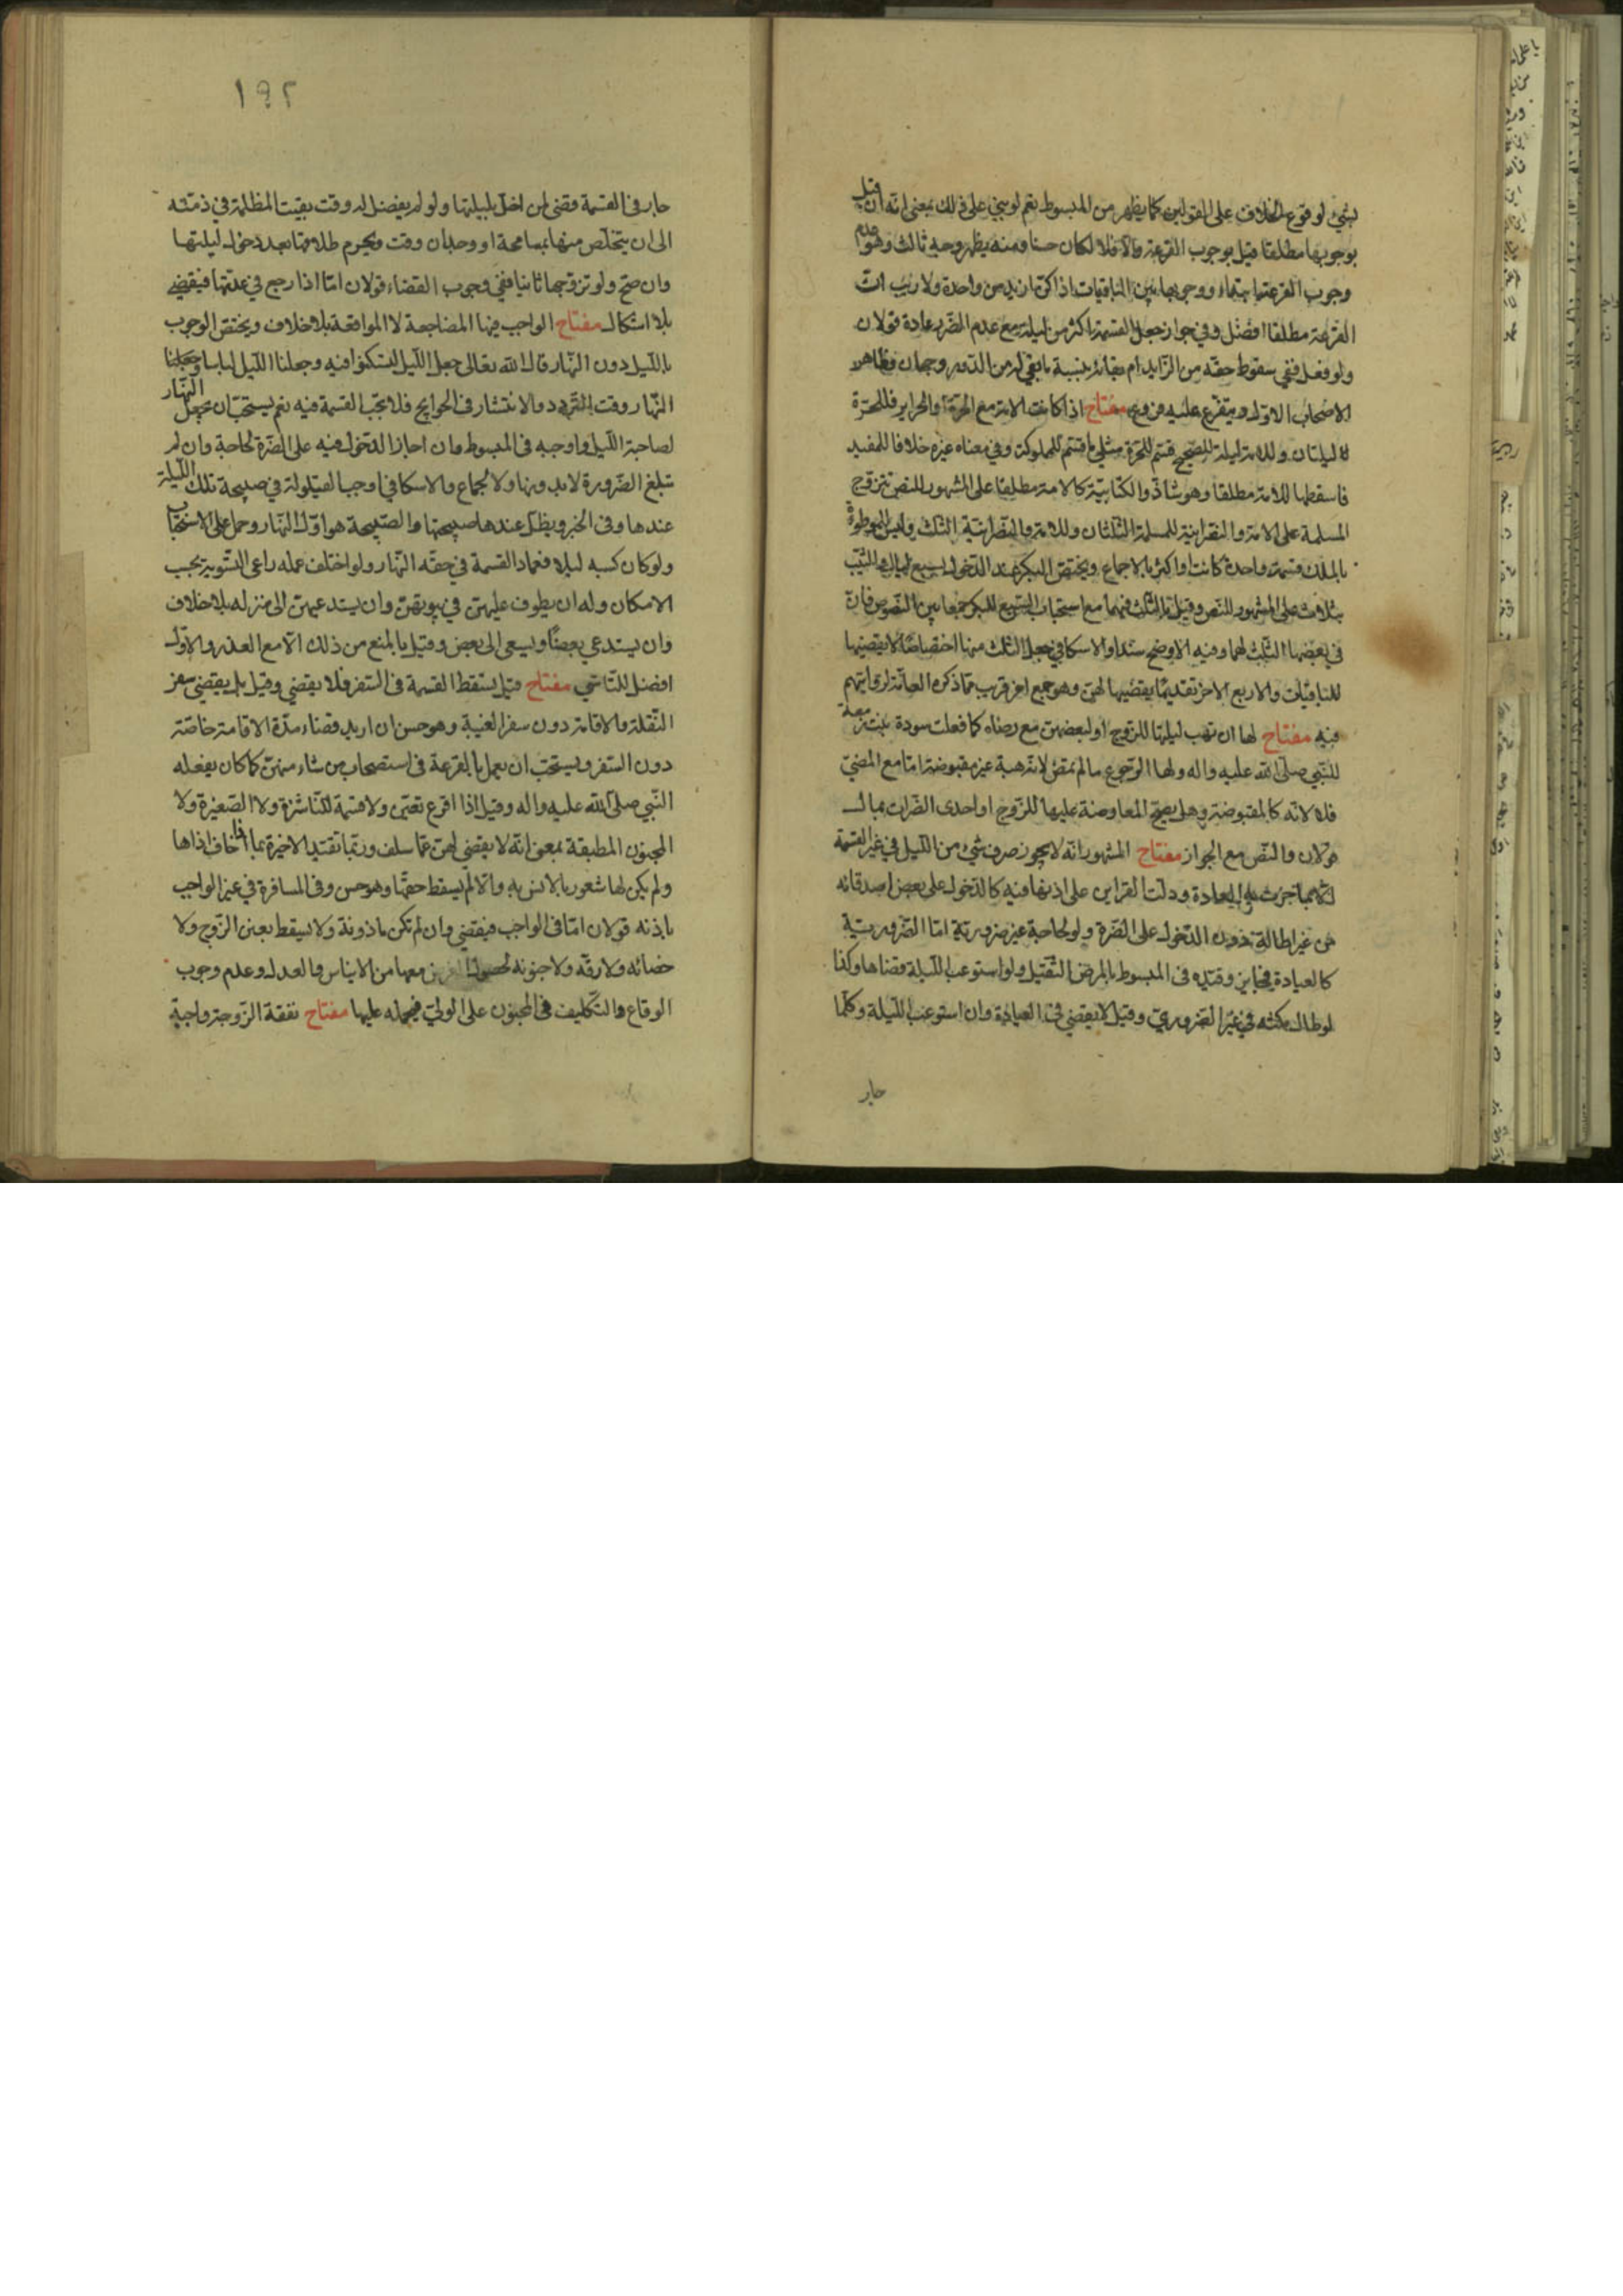 بشيء لوقوع الخلاف على القولين كما يظهر من المبسوط نعم لو بني على ذلك بمعنى انه ان قيل
بوجوبها مطلقا قيل بوجوب القرعة والا فلا لكان حسنا ومنه يظهر وجه ثالث وهو عدم
وجوب القرعة ابتداء ووجوبها بين الباقيات اذا كن ازيد من واحدة ولا ريب ان
القرعة مطلقا افضل وفي جواز جعل القسمة اكثر من ليلة مع عدم الضرر عادة قولان
ولو فعل ففي سقوط حقه من الزايد ام بقائه بنسبة ما بقي له من الدور وجهان وظاهر
الاصحاب الاول ويتفرع عليه فروع مفتاح اذا كانت الامة مع الحرة او الحراير فللحرة
ليلتان وللامة ليلة للصحيح قسم للحرة مثلي ما قسم للمملوكة وفي معناه غيره خلافا للمفيد
فاسقطها للامة مطلقا وهو شاذ والكتابية كالامة مطلقا على المشهور للنص تتزوج
المسلمة على الامة والنصرانية للمسلمة الثلثان وللامة والنصرانية الثلث وليس للموطوءة
بالملك قسمة واحدة كانت او اكثر بالاجماع ويختص البكر عند الدخول بسبع ليال والثيب
بثلاث على المشهور للنص وقيل بالثلث فيهما مع استحباب السبع للبكر جمعا بين النصوص فان
في بعضها الثلث لهما وفيه الاوضح سندا والاسكافي جعل الثلث منها اختصاصا لا يقضيها
للباقيات والاربع الاخر تقديما يقضيها لهن وهو جمع اخر قريب مما ذكره العامة لروايتهم
فيه مفتاح لها ان تهب ليلتها للزوج او لبعضهن مع رضاه كما فعلت سودة بنت زمعة
للنبي صلى الله عليه واله ولها الرجوع ما لم يمض لانه هبة غير مقبوضة اما مع المضي
فلا لانه كالمقبوضة وهل يصح المعاوضة عليها للزوج او احدى الضرات بمال
قولان والنص مع الجواز مفتاح المشهور انه لا يجوز صرف شيء من الليل في غير القسمة
الا بما جرت به العادة ودلت القراين على اذنها فيه كالدخول على بعض اصدقائه
من غير اطالة دون الدخول على الضرة ولو لحاجة غير ضرورية اما الضرورية
كالعيادة فجايز وقيده في المبسوط بالمرض الثقيل ولو استوعب الليلة قضاها وكذا
لو طال مكثه في غير الضروري وقيل لا يقضي في العيادة وان استوعب الليلة وكلما
جار
١٩٢
جار في القسمة قضى لمن اخل بليلتها ولو لم يفضل له وقت بقيت المظلمة في ذمته
الى ان يتخلص منها بمسامحة او وجدان وقت ويحرم طلاقها بعد دخول ليلتها
وان صح ولو تزوجها ثانيا ففي وجوب القضاء قولان اما اذا رجع في عدتها فيقضي
بلا اشكال مفتاح الواجب فيها المضاجعة لا المواقعة بلا خلاف ويختص الوجوب
بالليل دون النهار قال الله تعالى جعل الليل لتسكنوا فيه وجعلنا الليل لباسا وجعلنا
النهار وقت التردد والانتشار في الحوايج فلا يجب القسمة فيه نعم يستحب ان يجعل النهار
لصاحبة الليل واوجبه في المبسوط وان اجاز الدخول فيه على الضرة لحاجة وان لم
تبلغ الضرورة لا بدونها ولا لجماع والاسكافي اوجب القيلولة في صبيحة تلك الليلة
عندها وفي الخبر ويظل عندها صبيحتها والصبيحة هو اول النهار وحمل على الاستحباب
ولو كان كسبه ليلا فعماد القسمة في حقه النهار ولو اختلف عمله راعى التسوية بحسب
الامكان وله ان يطوف عليهن في بيوتهن وان يستدعيهن الى منزله بلا خلاف
وان يستدعي بعضا ويسعى الى بعض وقيل بالمنع من ذلك الا مع العذر والاول
افضل للتاسي مفتاح قيل يسقط القسمة في السفر فلا يقضي وقيل بل يقضي سفر
النقلة والاقامة دون سفر الغيبة وهو حسن ان اريد قضاء مدة الاقامة خاصة
دون السفر ويستحب ان يعمل بالقرعة في استصحاب من شاء منهن كما كان يفعله
النبي صلى الله عليه واله وقيل اذا اقرع تعين ولا قسمة للناشزة ولا الصغيرة ولا
المجنون المطبقة بمعنى انه لا يقضي لهن عما سلف وربما تقيد الاخيرة بما اذا خاف اذاها
ولم يكن لها شعور بالانس به والا لم يسقط حقها وهو حسن وفي المسافرة في غير الواجب
باذنه قولان اما في الواجب فيقضي وان لم تكن ماذونة ولا يسقط بعنن الزوج ولا
خصائه ولا رقه ولا جنونه لحصول الغرض معها من الايناس والعدل وعدم وجوب
الوقاع والتكليف في المجنون على الولي فيحمله عليها مفتاح نفقة الزوجة واجبة